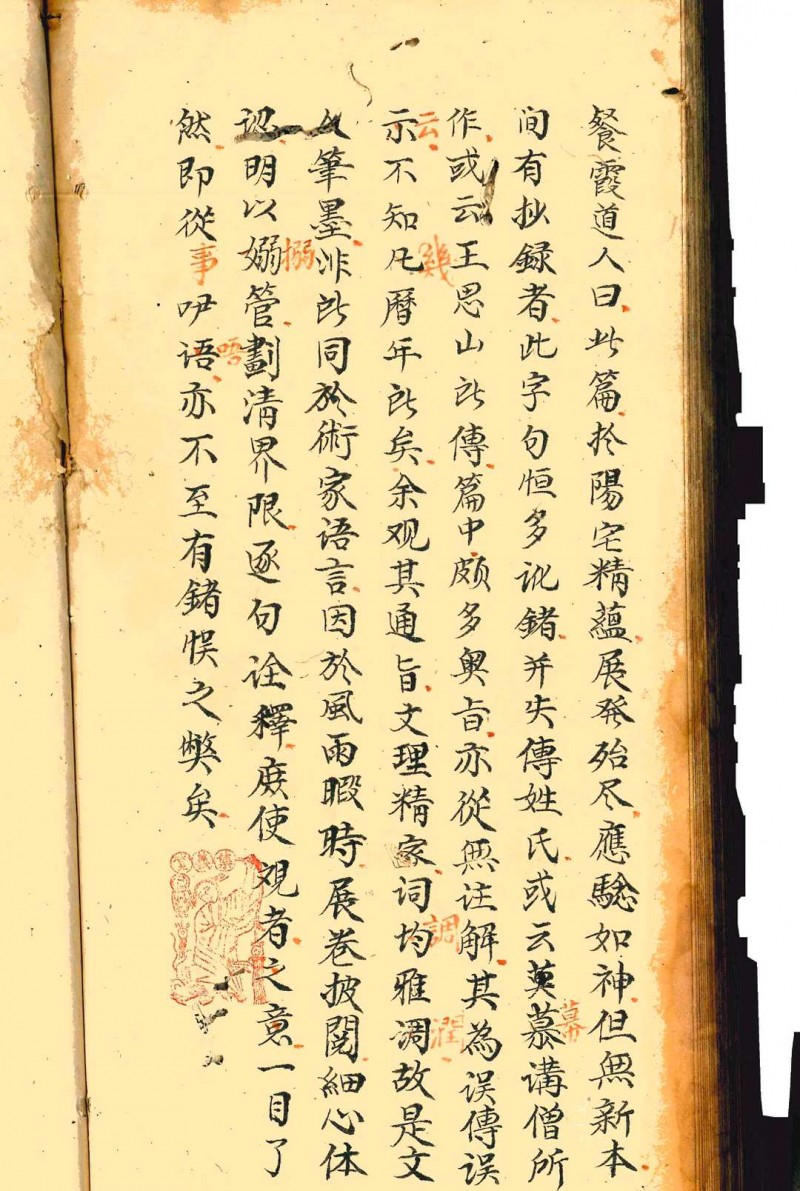 餐霞道人曰此篇扵陽宅精蘊展發殆尽應騐如神但無新本
间有抄録者此字句恒多訛鍺并失傳姓氏或云莫慕講僧所
幕
作或云王思山所傳篇中頗多奥旨亦從無注解其為误傳误
示不知凡曆年所矣余观其通旨文理精家词均雅调故是文
云
幾
調
潤
人筆墨非所同於術家语言因於風雨暇時展卷披閱細心体
認明以嫋管劃清界限逐句诠釋庶使观者之意一目了
搦
然即從咿语亦不至有鍺悮之弊矣
事
唔